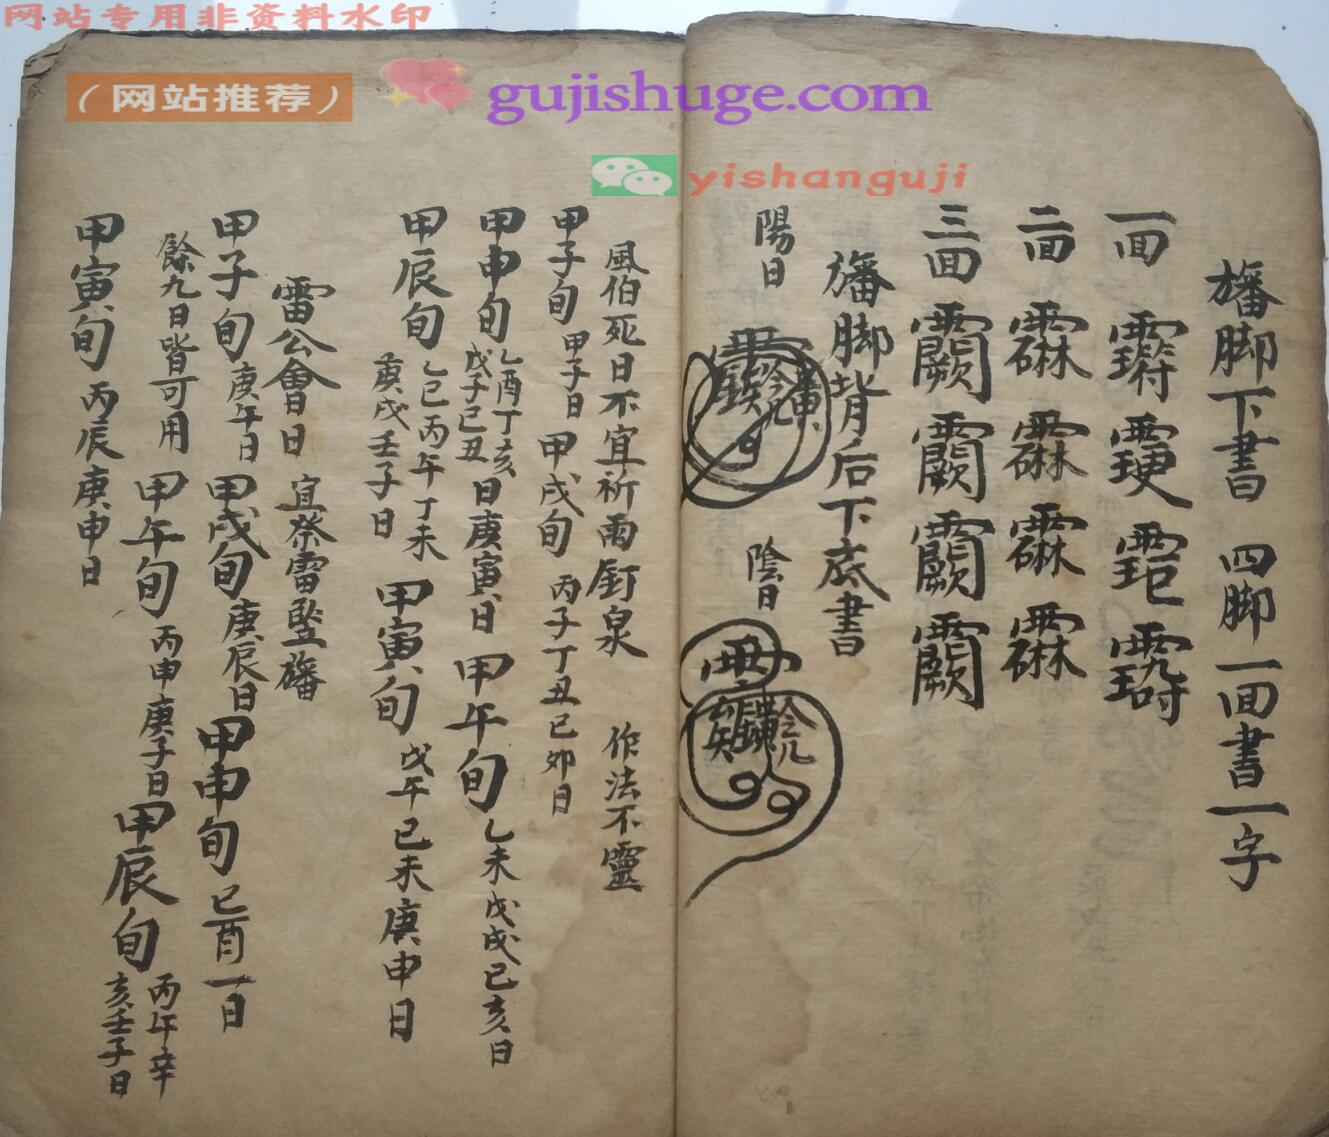 网站专用非资料水印
（网站推荐）
gujishuge.com
yishanguji
旛脚下書 四脚一面書一字
一面
二面
三面
旛脚背后下底書
陽日
陰日
風伯死日不宜祈雨釘泉 作法不靈
甲子旬 甲子日 甲戌旬 丙子丁丑己卯日
甲申旬 乙酉丁亥戊子己丑日庚寅日 甲午旬 乙未戊戌己亥日
甲辰旬 乙巳丙午丁未庚戌壬子日 甲寅旬 戊午己未庚申日
雷公會日 宜祭雷竪旛
甲子旬 庚午日 甲戌旬 庚辰日 甲申旬 己酉一日
餘九日皆可用 甲午旬 丙申庚子日 甲辰旬 丙午辛亥壬子日
甲寅旬 丙辰庚申日